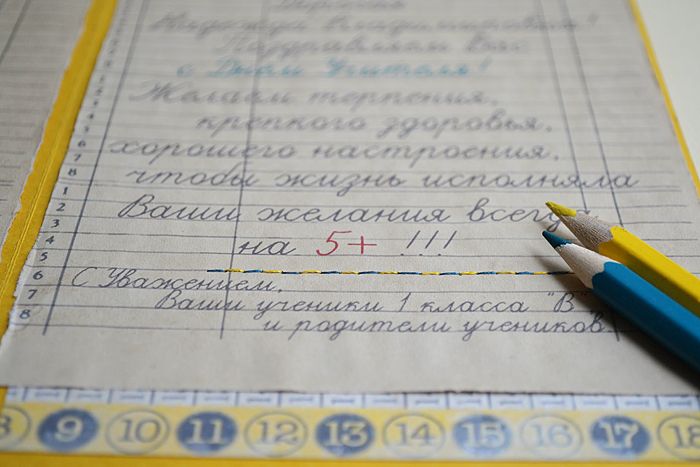 Дорогая
Надежда Владимировна!
Поздравляем Вас
с Днём Учителя!
Желаем терпения,
крепкого здоровья,
хорошего настроения,
чтобы жизнь исполняла
Ваши желания всегда
на 5+ !!!
С Уважением,
Ваши ученики 1 класса "В"
и родители учеников.
7
8
1
2
3
4
5
6
7
8
9 10 11 12 13 14 15 16 17 18